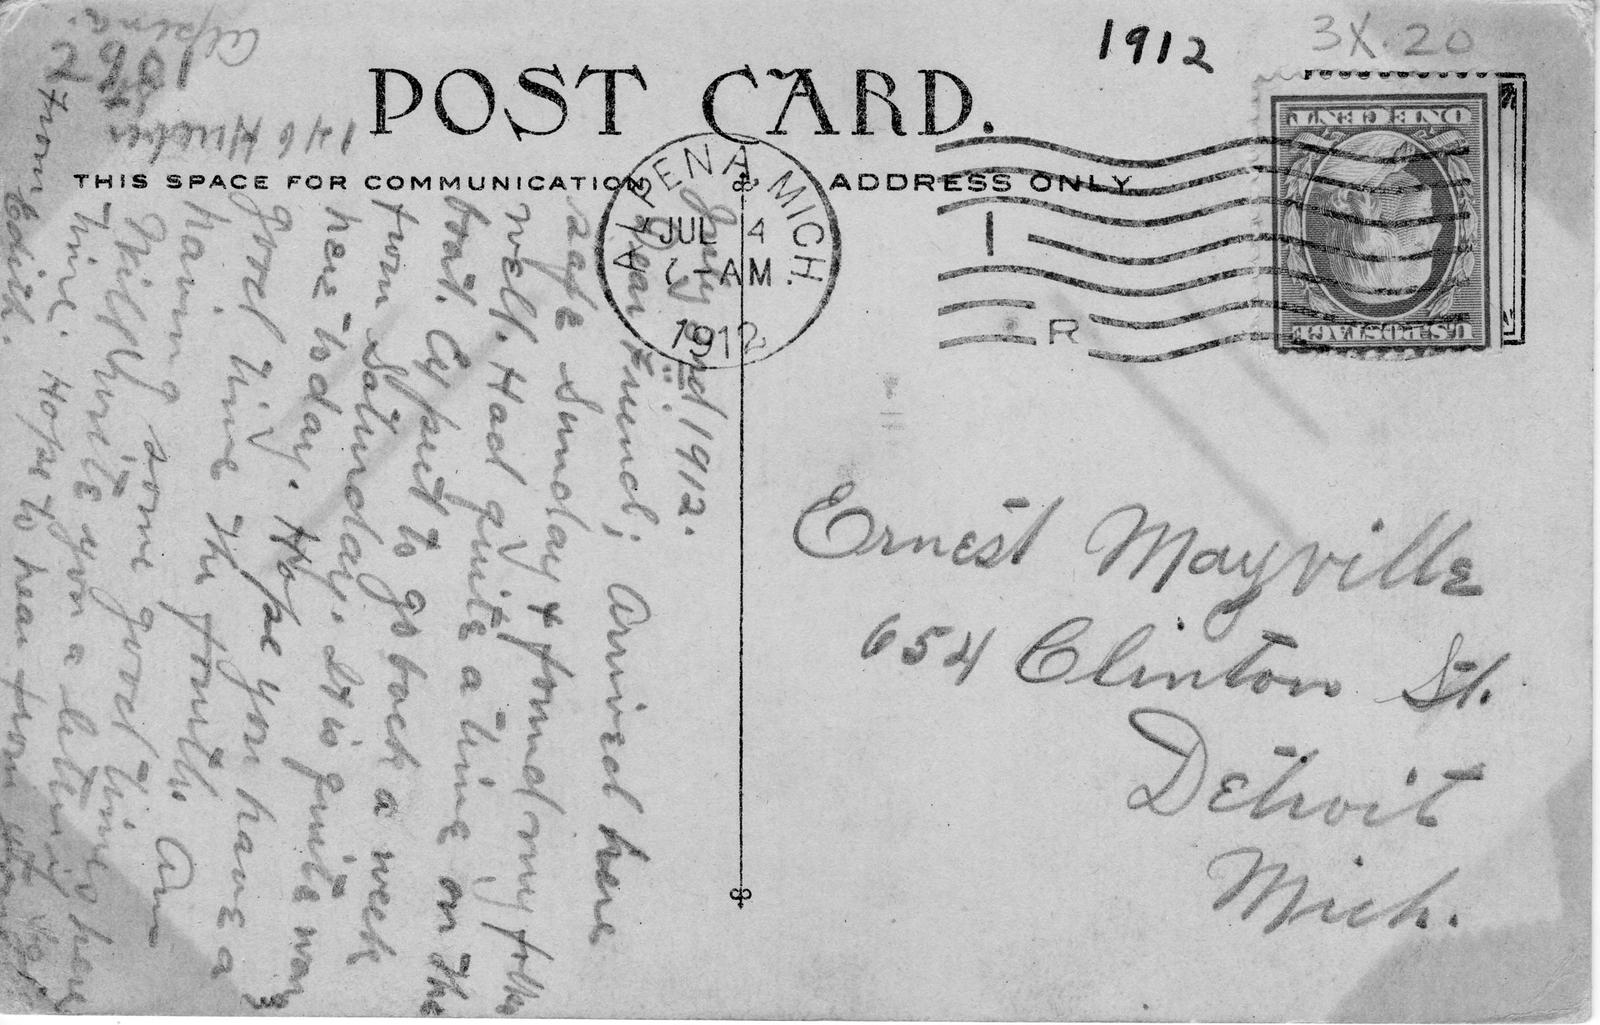 1912
3X.20
POST CARD.
THIS SPACE FOR COMMUNICATION
ADDRESS ONLY
ALPENA, MICH.
JUL 4
AM
1912
1
R
ONE CENT
U.S. POSTAGE
July 3rd 1912.
Dear Friend; Arrived here
safe Sunday & found my folks
well. Had quite a time on the
boat. expect to go back a week
from Saturday. It is quite warm
here today. Hope you have a
good time the fourth. Am
having some good times here
Will write you a letter
time. Hope to hear from you
From
Edith.
146
Alpena
Ernest Mayville
654 Clinton St.
Detroit
Mich.